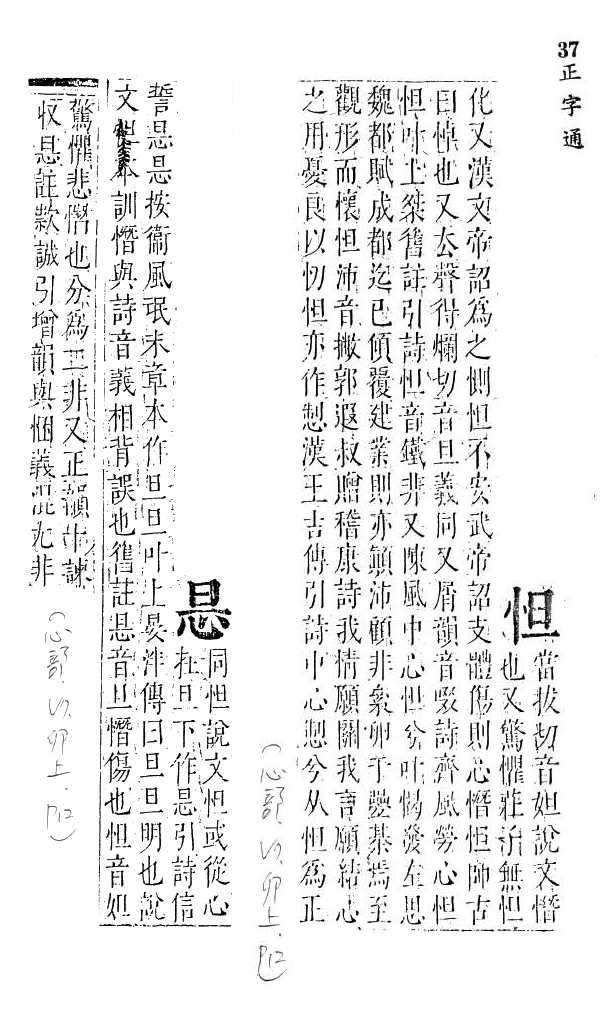 37正字通
怛
當拔切音妲說文憯
也又驚懼莊子無怛
化又漢文帝詔爲之惻怛不安武帝詔支體傷則心憯怛師古
曰悼也又去聲得爛切音旦義同又屑韻音啜詩齊風勞心怛
怛叶上桀舊註引詩怛音鐵非又陳風中心怛兮叶偈發左思
魏都賦成都迄已傾覆建業則亦顚沛顧非衆卵于疊棊焉至
觀形而懷怛沛音撇郭遐叔贈稽康詩我情願關我言願結心
之用憂良以忉怛亦作㤞漢王吉傳引詩中心㤞兮从怛爲正
㫜
同怛說文怛或從心
在旦下作㫜引詩信
誓㫜㫜按衞風氓末章本作旦旦叶上晏泮傳曰旦旦明也說
文怛本訓憯與詩音義相背誤也舊註㫜音旦憯傷也怛音妲
驚懼悲慴也分爲二非又正韻廿諫
收㫜註款誠引增韻與悃義混尤非
(心部,卯上,P12)
(心部,卯上,P12)